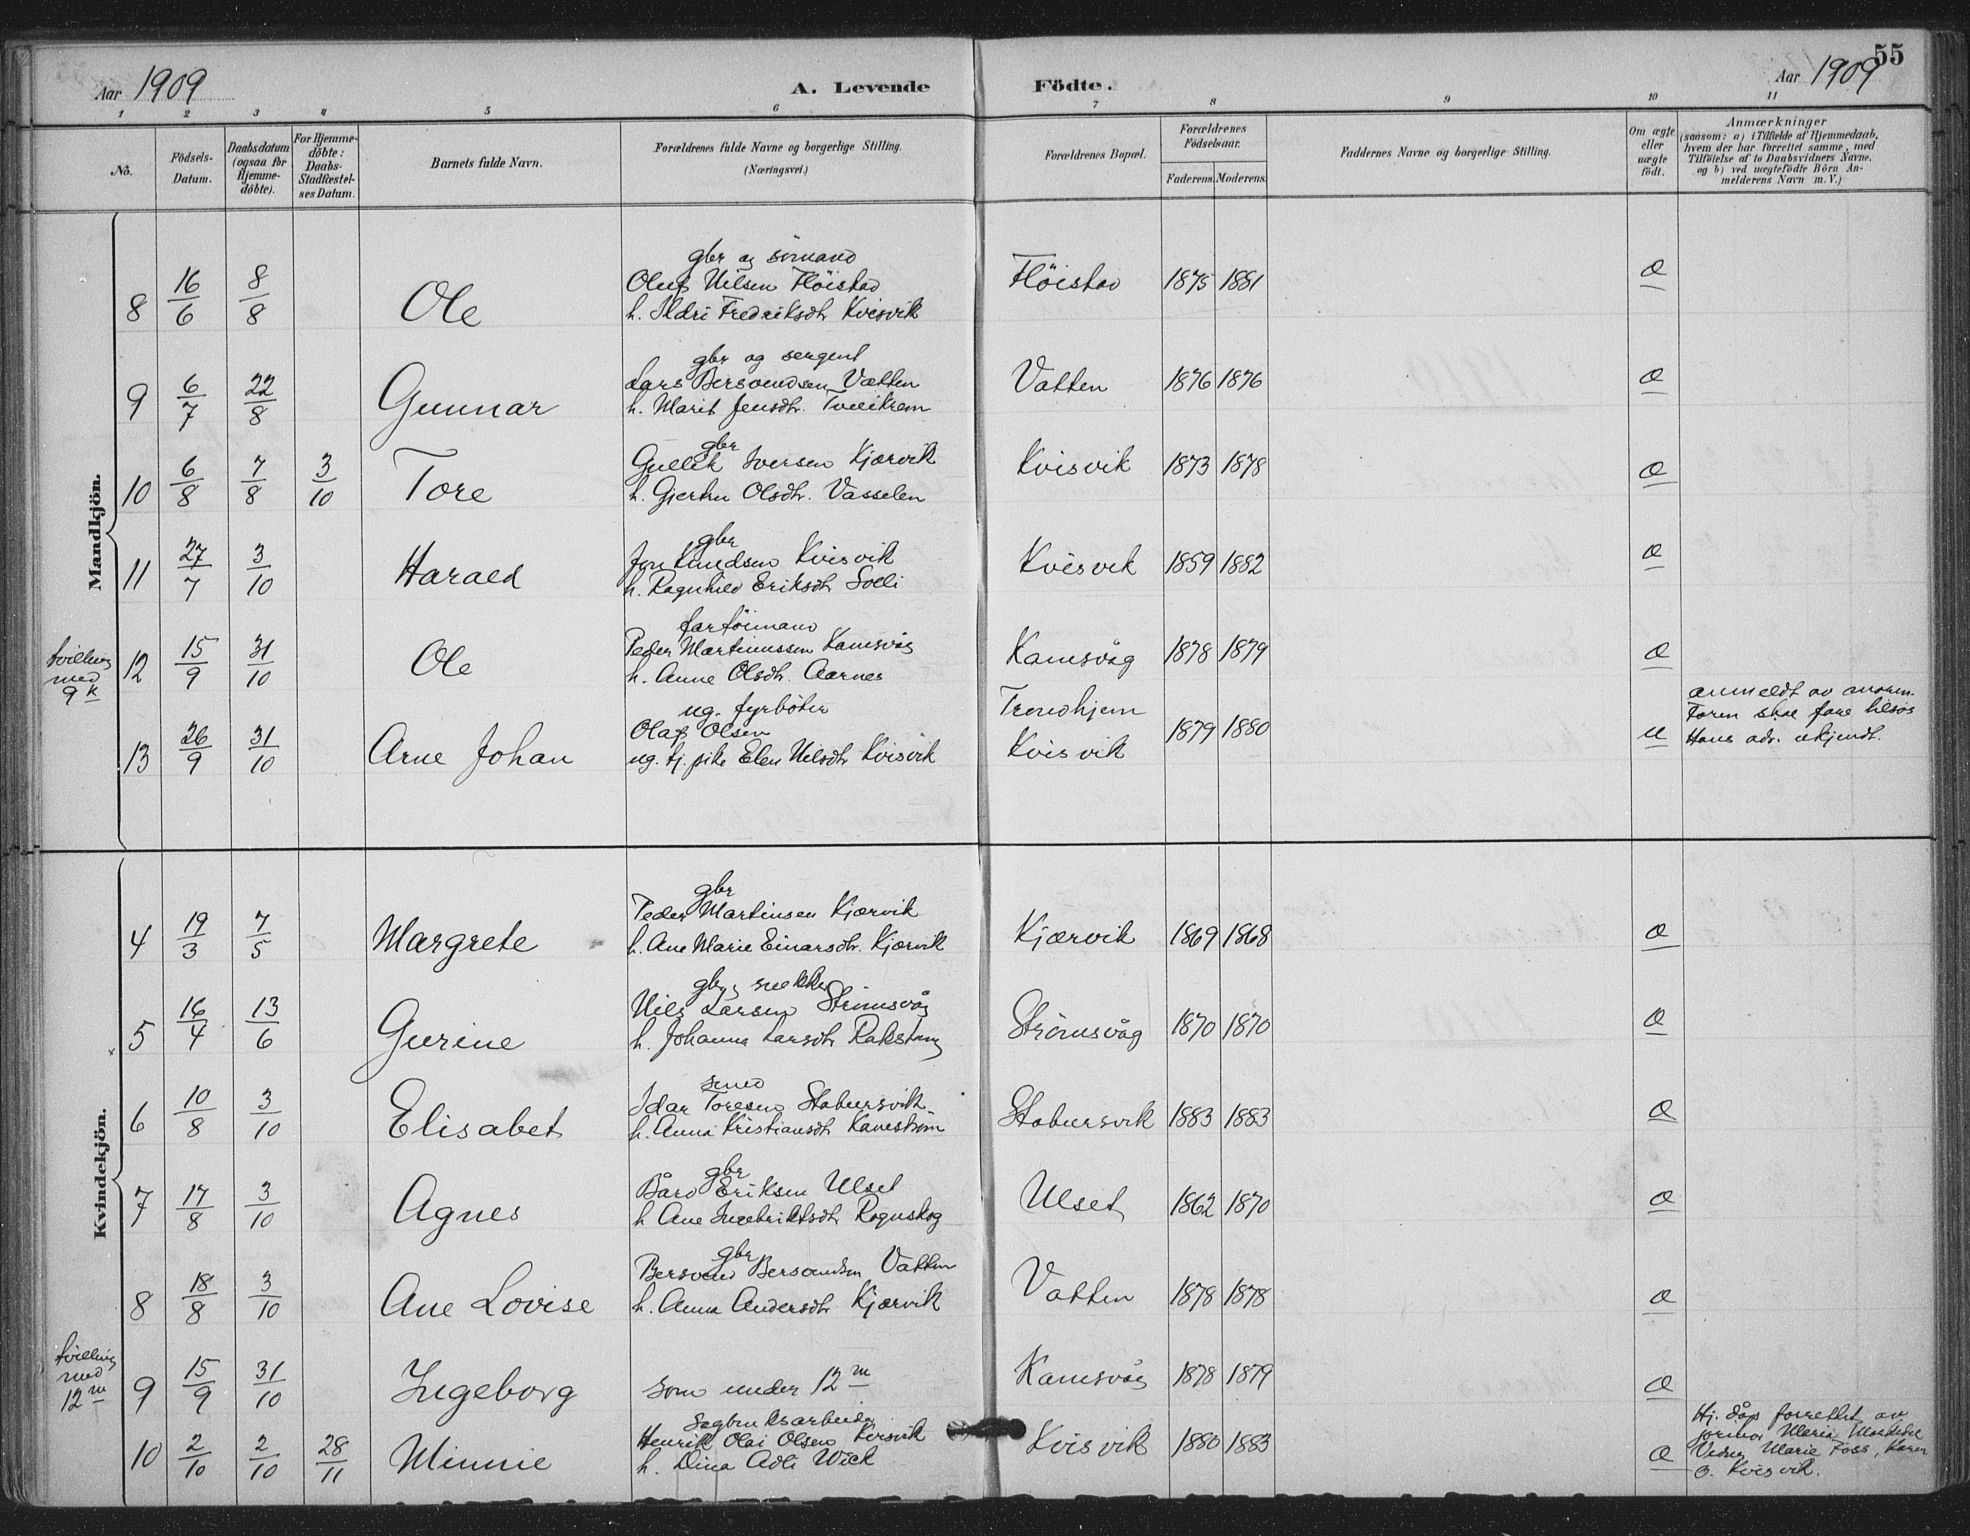 55
Aar 1909
A. Levende Födte.
Aar 1909
1 2 3 4 5 6 7 8 9 10 11
No.
Födsels-Datum.
Daabsdatum (ogsaa for Hjemmedöbte).
For Hjemmedöbte: Daabs-Stadfæstelses Datum.
Barnets fulde Navn.
Forældrenes fulde Navne og borgerlige Stilling.
(Næringsvei.)
Forældrenes Bopæl.
Forældrenes Födselsaar.
Faderens. Moderens.
Faddernes Navne og borgerlige Stilling.
Om ægte eller uægte födt.
Anmærkninger
(saasom: a) i Tilfælde af Hjemmedaab,
hvem der har forrettet samme, med
Tilföielse af to Daabsvidners Navne,
og b) ved uægtefödte Börn An-
melderens Navn m. V.)
Mandkjön.
gbr og sömand
8 16/6 8/8 Ole Oluf Nilsen Flöistad Flöistad 1875 1881 Æ
h. Ildri Fredriksdtr Kvisvik
gbr og sergent
9 6/7 22/8 Gunnar Lars Bersvendsen Vatten Vatten 1876 1876 Æ
h. Marit Jensdtr. Tveikrem
gbr
10 6/8 7/8 3/10 Tore Gullik Iversen Kjørvik Kvisvik 1873 1878 Æ
h. Gjertru Olsdtr. Vasselen
gbr
11 27/7 3/10 Harald Jon Knudsen Kvisvik Kvisvik 1859 1882 Æ
h. Ragnhild Eriksdtr Solli
fartöimand
tvilling med 9 k
12 15/9 31/10 Ole Peder Martinussen Kamsvåg Kamsvåg 1878 1879 Æ
h. Anne Olsdtr. Aarnes
ug. fyrböter
13 26/9 31/10 Arne Johan Olaf Olsen Trondhjem 1879 1880 u
ug. tj. pike Elen Nilsdtr Kvisvik Kvisvik
anmeldt av
Faren skal fare tilsös
Hans adr. ukjendt.
Kvindekjön.
gbr
4 19/3 7/5 Margrete Peder Martinsen Kjørvik Kjørvik 1869 1868 Æ
h. Ane Marie Einarsdtr. Kjørvik
gbr, snekker
5 16/4 13/6 Gurine Nils Larsen Strömsvåg Strömsvåg 1870 1870 Æ
h. Johanna Larsdtr
smed
6 10/8 3/10 Elisabet Idar Toresen Stabursvik Stabursvik 1883 1883 Æ
h. Anna Kristiansdtr Kanestrøm
gbr
7 17/8 3/10 Agnes Bård Eriksen Ulset Ulset 1862 1870 Æ
h. Ane Ingebriktsdtr Rognskog
gbr
8 18/8 3/10 Ane Lovise Bersvend Bersvendsen Vatten Vatten 1878 1878 Æ
h. Anna Andersdtr Kjørvik
tvilling med 12 m
9 15/9 31/10 Ingeborg som under 12 m Kamsvåg 1878 1879 Æ
Sagbruksarbeider
10 2/10 2/10 28/11 Minnie Henrik Olai Olsen Kvisvik Kvisvik 1880 1883 Æ
h. Dina Adli Wick
Hj. dåp forrettet av
jormor
Vidner Marie Foss, Karen
O. Kvisvik.